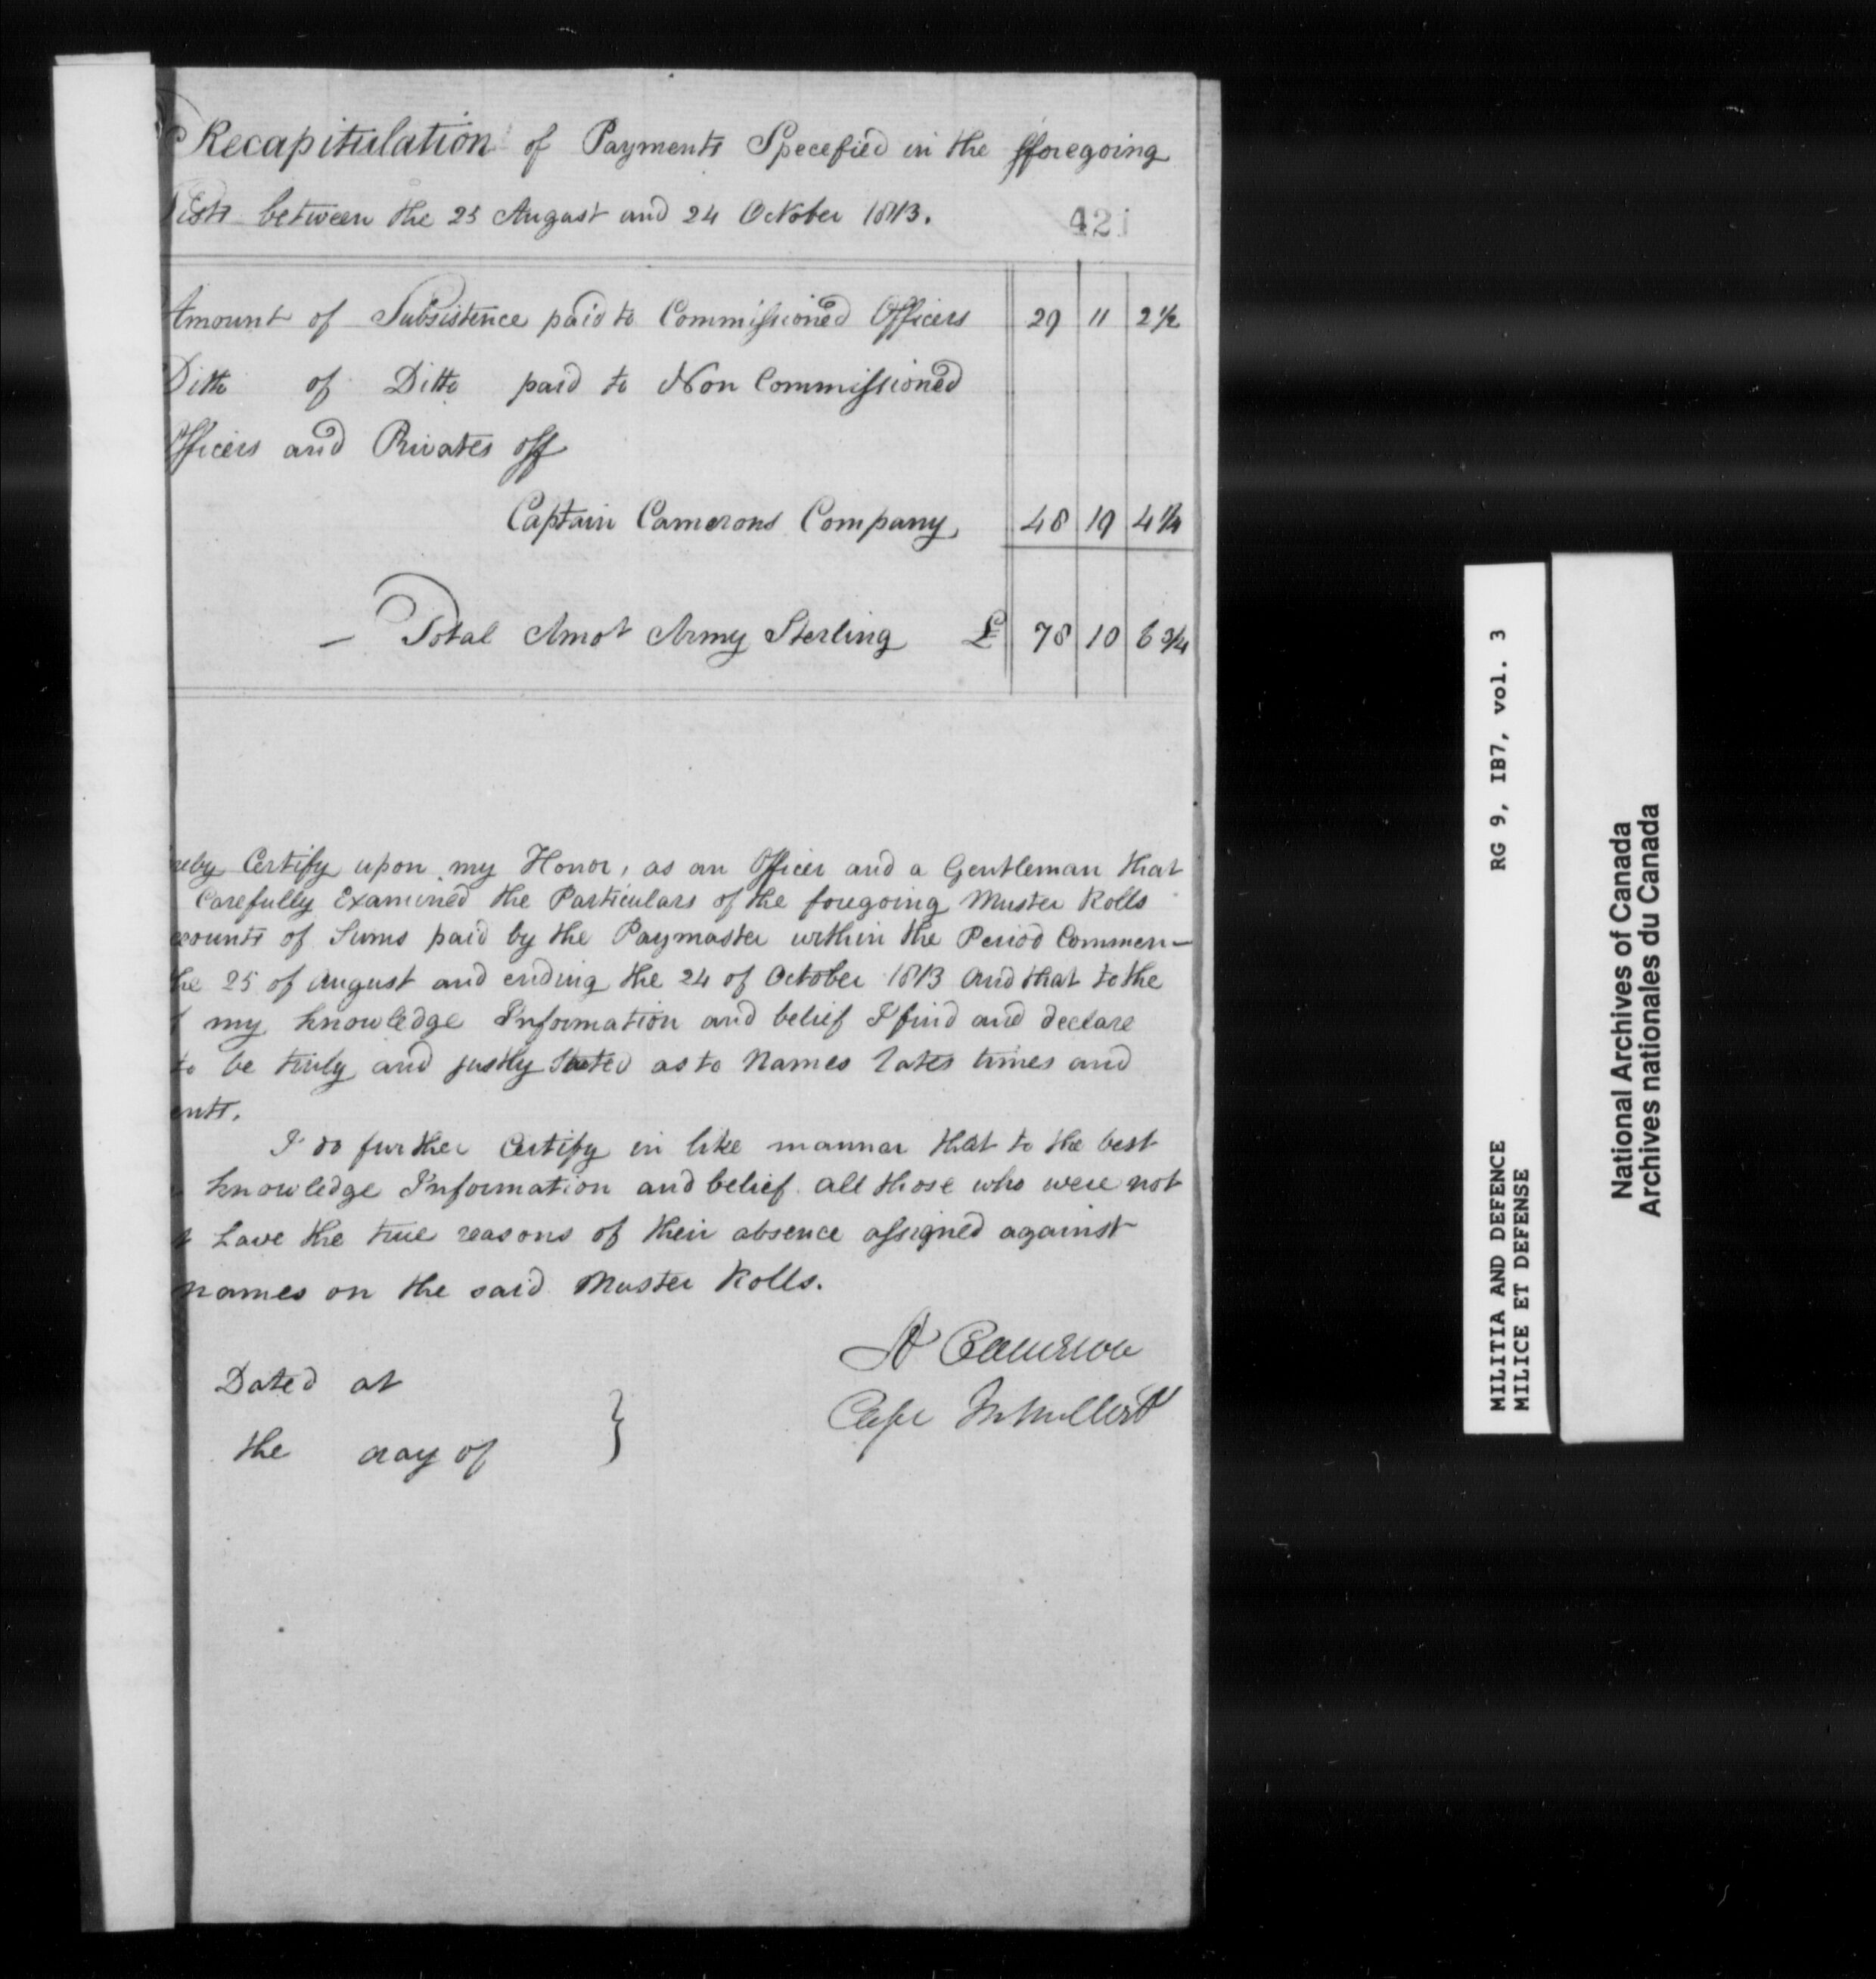 Recapitulation of Payments Specefied in the fforegoing
Lists between the 25 August and 24 October 1813.
421
Amount of Subsistence paid to Commissioned Officers 29 11 2 1/2
Ditto of Ditto paid to Non Commissioned
Officers and Privates off
Captain Camerons Company 48 19 4 1/4
— Total Amot Army Sterling £ 78 10 6 3/4
reby Certify upon my Honor, as an Officer and a Gentleman that
Carefully Examined the Particulars of the foregoing Muster Rolls
counts of Sums paid by the Paymaster within the Period Commen-
he 25 of August and ending the 24 of October 1813 and that to the
my knowledge Information and belief I find and declare
to be truly and justly Stated as to Names Rates times and
ents.
I do further Certify in like mannar that to the best
knowledge Information and belief all those who were not
have the true reasons of their absence assigned against
names on the said Muster Rolls.
A Cameron
Capt
Dated at
the day of }
MILITIA AND DEFENCE RG 9, IB7, vol. 3
MILICE ET DEFENSE
National Archives of Canada
Archives nationales du Canada